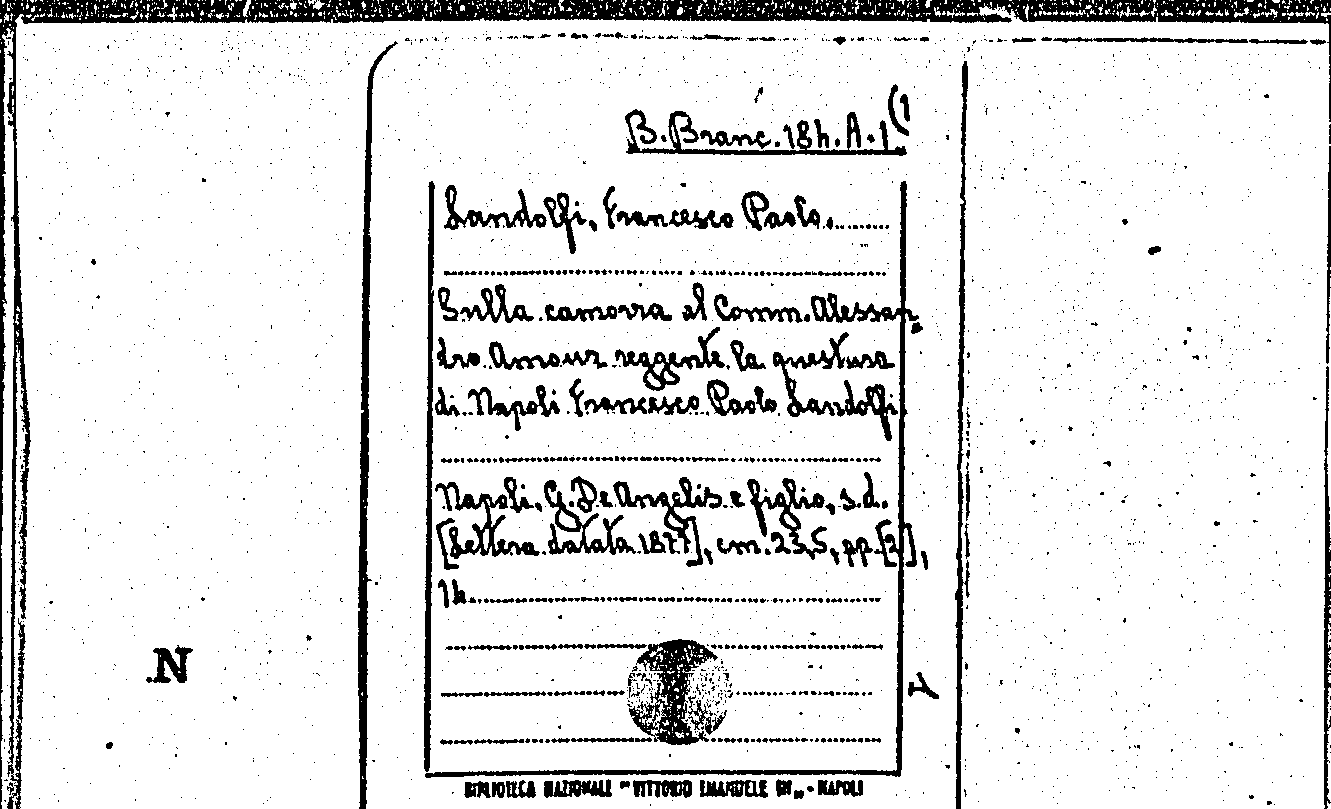 B. Branc. 18h. A. 1(1
Landolfi, Francesco Paolo.
Sulla camorra al Comm. Alessan-
dro Amour reggente la questura
di Napoli Francesco Paolo Landolfi.
Napoli, G. De Angelis e figlio, s.d.
[Lettera datata 1877], cm. 23,5, pp. [2],
14.
N
BIBLIOTECA NAZIONALE "VITTORIO EMANUELE III" - NAPOLI